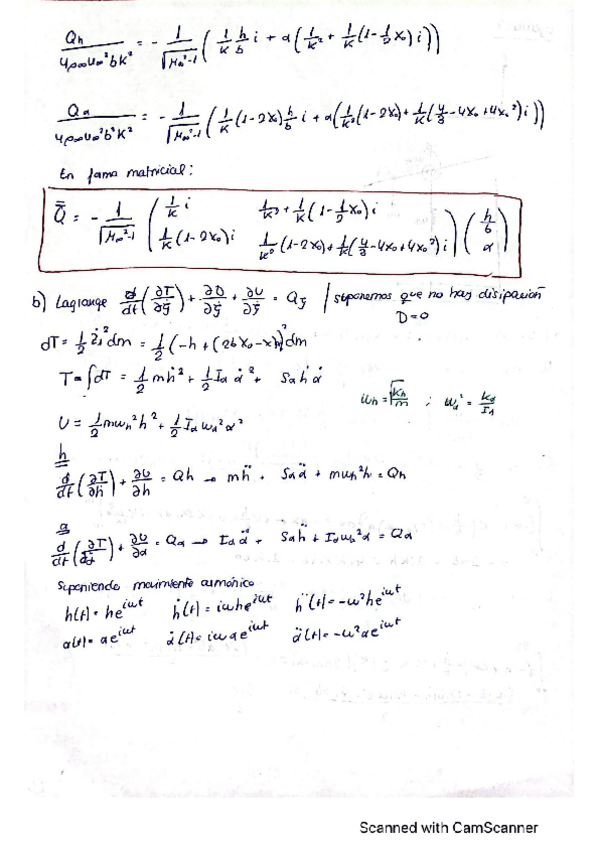 Qh / 4ρ∞u∞²bK² = - 1/√(M∞²-1) ( 1/K h/b i + α ( 1/K² + 1/K (1 - 1/2 x₀) i ) )
Qα / 4ρ∞u∞²b²K² = - 1/√(M∞²-1) ( 1/K (1-2x₀) h/b i + α ( 1/K² (1-2x₀) + 1/K ( 4/3 - 4x₀ + 4x₀² ) i ) )
En forma matricial:
Q̄ = - 1/√(M∞²-1) ( 1/K i   1/K² + 1/K (1 - 1/2 x₀) i ; 1/K (1-2x₀) i   1/K² (1-2x₀) + 1/K ( 4/3 - 4x₀ + 4x₀² ) i ) ( h/b ; α )
b) Lagrange d/dt (∂T/∂ξ̇) + ∂D/∂ξ̇ + ∂U/∂ξ = Qξ / suponemos que no hay disipación
D=0
dT = 1/2 ż² dm = 1/2 (-h + (2bx₀ - x)
T = ∫dT = 1/2 mḣ² + 1/2 Iα α̇² + Sα ḣ α̇
ωh = √(Kh/m) ; ωα² = Kα/Iα
U = 1/2 mωh² h² + 1/2 Iα ωα² α²
h
d/dt (∂T/∂ḣ) + ∂U/∂h = Qh → mḧ + Sα α̈ + mωh² h = Qh
α
d/dt (∂T/∂α̇) + ∂U/∂α = Qα → Iα α̈ + Sα ḧ + Iα ωα² α = Qα
Suponiendo movimiento armónico
h(t) = he^iωt   ḣ(t) = iωhe^iωt   ḧ(t) = -ω²he^iωt
α(t) = αe^iωt   α̇(t) = iωαe^iωt   α̈(t) = -ω²αe^iωt
Scanned with CamScanner